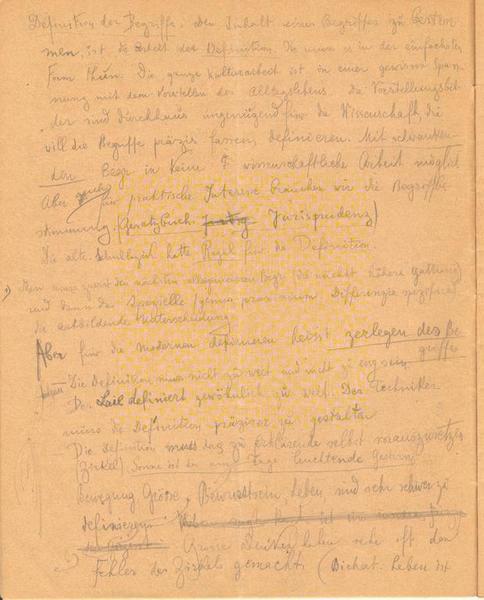 Definition der Begriffe. Den Inhalt eines Begriffes zu bestim-
men, ist die Arbeit der Definition. Sie muss es in der einfachsten
Form thun. Die ganze Kulturarbeit ist in einer gewissen Span-
nung mit dem Vorstellen des Alltagslebens. Die Vorstellungsbil-
der sind durchhaus ungenügend für die Wissenschaft, die
will die Begriffe präzis fassen, definieren. Mit schwanken-
den Begr. ist keine wissenschaftliche Arbeit möglich
Aber auch für praktische Interesse brauchen wir die Begriffbe-
stimmung (Gesetzbuch. Jurisprudenz)
Die alte Schullogik hatte Regel für die Definition.
Man muss zuerst den nächsten allgemeinen Begr. (die nächst höhere Gattung)
und dann das Spezielle (genus proximum. Differentia specifica)
die artbildende Unterscheidung.
Aber für die modernen definieren heisst zerlegen des Be-
griffes
Die Definition muss nicht zu weit und nicht zu eng sein
Der Laie definiert gewöhnlich zu weit. Der Techniker
muss die Definition präziser zu gestalten
Die Definition muss das zu erklärende selbst voraussetzen
(Zirkel) Sonne ist der am Tage leuchtende Gestirn.
Bewegung Grösse, Bewusstsein, Leben, sind sehr schwer zu
definieren.
Grosse Denker haben sehr oft den
Fehler des Zirkels gemacht. (Bichat. Leben ist